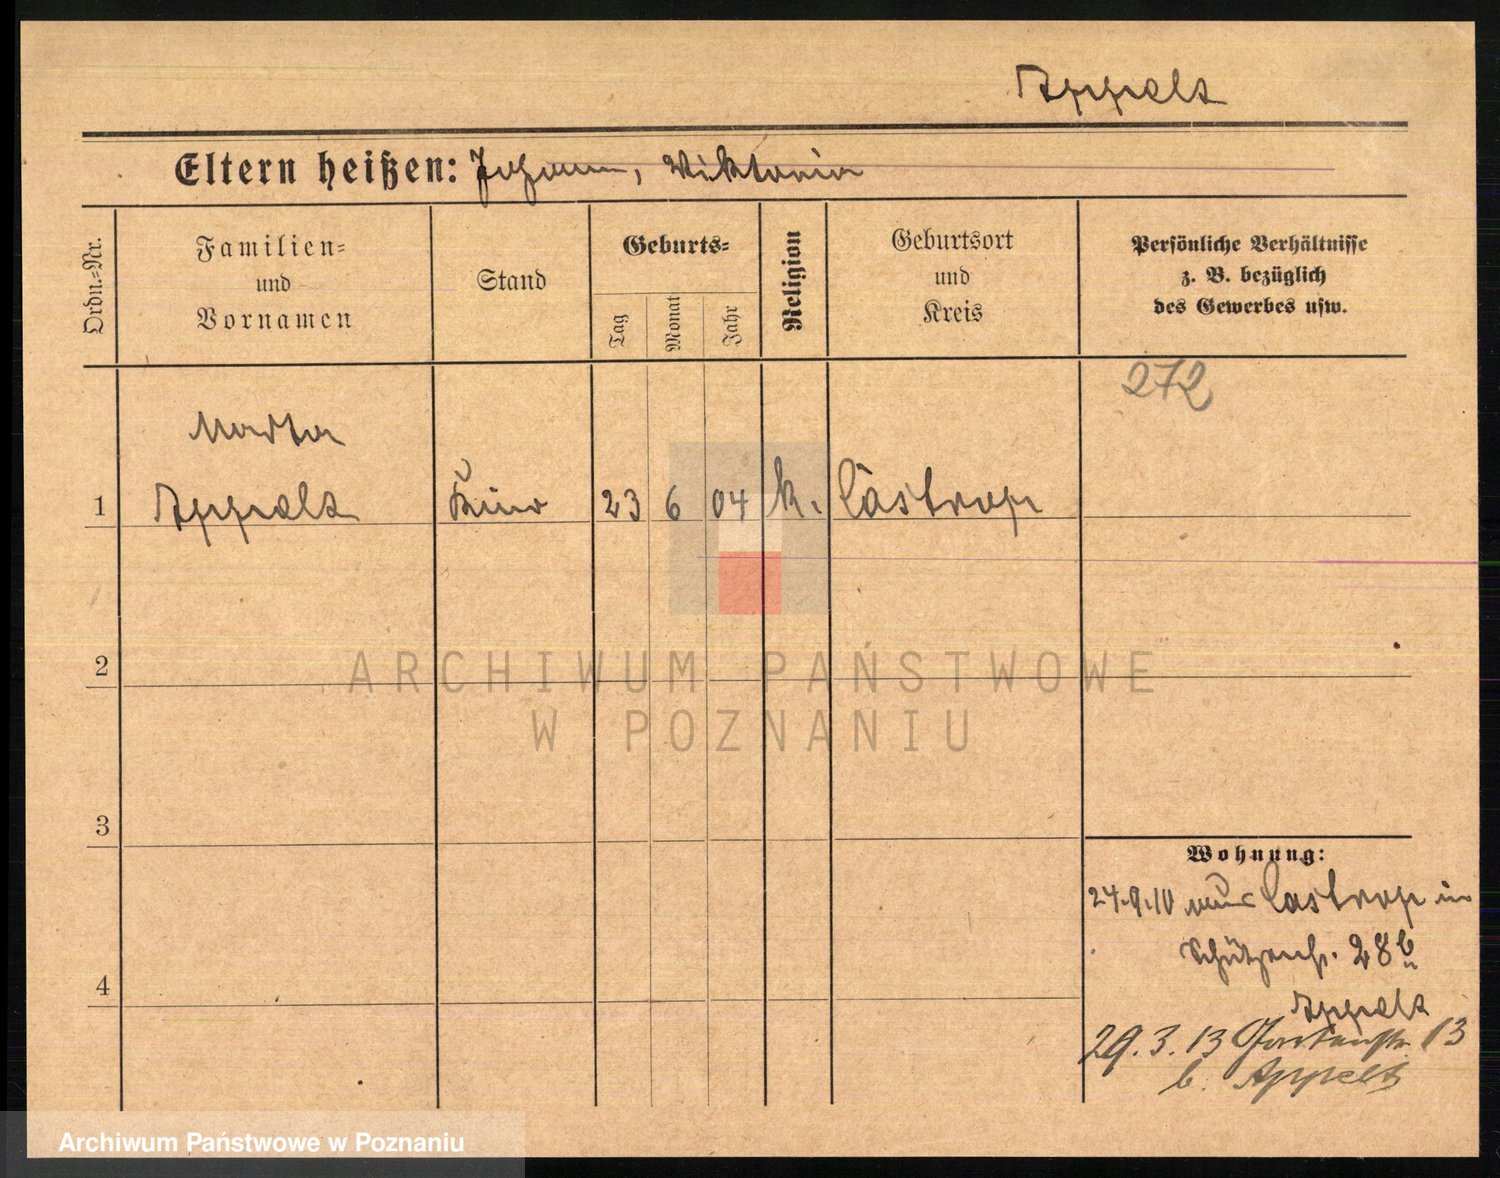 Appelt
Eltern heißen: Johann, Viktoria
Ordn.-Nr.
Familien-
und
Vornamen
Stand
Geburts-
Tag
Monat
Jahr
Religion
Geburtsort
und
Kreis
Persönliche Verhältnisse
z. B. bezüglich
des Gewerbes usw.
272
Marta
1 Appelt Kind 23 6 04 k. Castrop
ARCHIWUM PAŃSTWOWE
W POZNANIU
2
3
4
Wohnung:
24.9.10 aus Castrop in
Schützenstr. 28 b
Appelt
29.3.13 Gartenstr. 13
b. Appelt
Archiwum Państwowe w Poznaniu